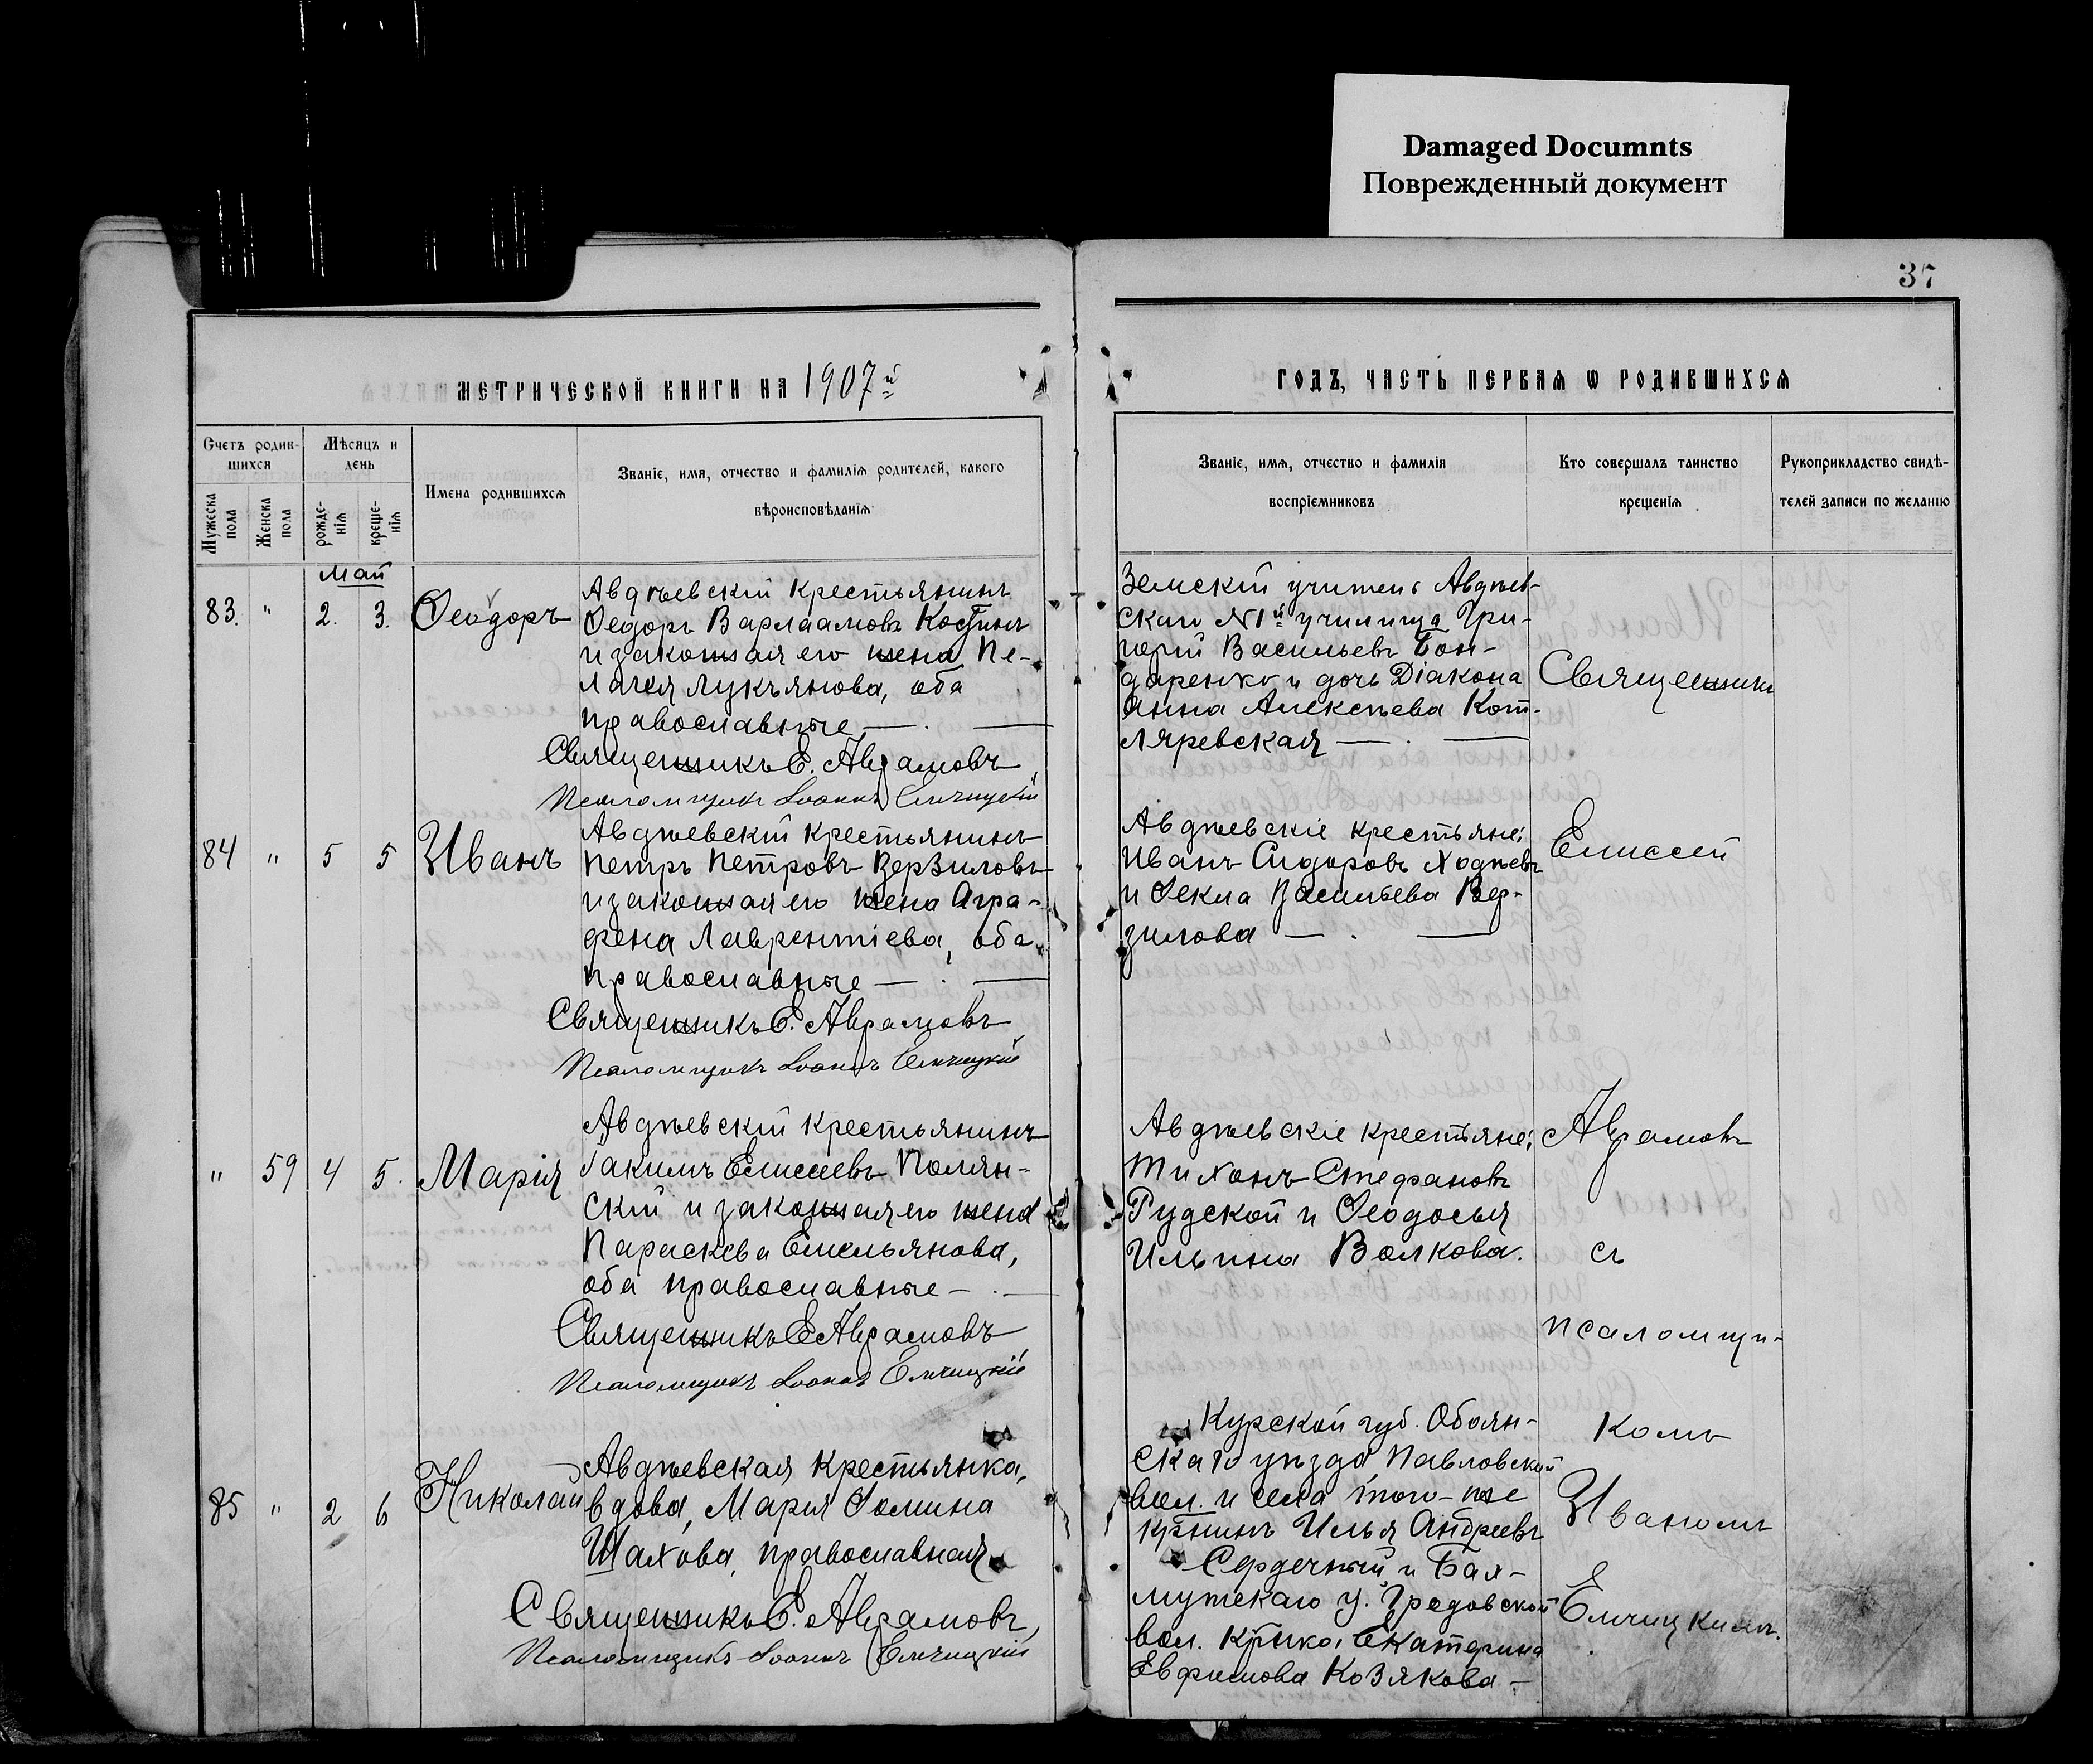 Damaged Documnts
Поврежденный документ
37
МЕТРИЧЕСКОЙ КНИГИ НА 1907й
ГОДЪ, ЧАСТЬ ПЕРВАЯ Ѡ РОДИВШИХСЯ
Счетъ родив-
шихся
Мѣсяцъ и
день
Мужеска
пола
Женска
пола
рожде-
нія
креще-
нія
Имена родившихся
Званіе, имя, отчество и фамилія родителей, какого
вѣроисповѣданія
Званіе, имя, отчество и фамилія
воспріемниковъ
Кто совершалъ таинство
крещенія
Рукоприкладство свидѣ-
телей записи по желанію
Май
83. " 2. 3. Ѳеодоръ
Авдѣевскій крестьянинъ
Ѳедоръ Варлаамовъ Костинъ
и законная его жена Пе-
лагея Лукъянова, оба
православные — . —
Священникъ Е. Авдамовъ
Псаломщикъ Іоаннъ Елчицкій
Земскій учитель Авдѣев-
скаго №1й училища Гри-
горій Васильевъ Бон-
даренко и дочь Діакона
Анна Алексѣева Кот-
ляревская — . —
84 " 5 5 Иванъ
Авдѣевскій крестьянинъ
Петръ Петровъ Верзиловъ
и законная его жена Агра-
фена Лаврентіева, оба
православные — . —
Священникъ Е. Аврамовъ
Псаломщикъ Іоаннъ Елчицкій
Авдѣевскіе крестьяне:
Иванъ Сидоровъ Ходѣевъ
и Ѳекла Васильева Вер-
зилова — . —
" 59 4 5. Марія
Авдѣевскій крестьянинъ
Іакимъ Елисеевъ Полян-
скій и законная его жена
Параскева Емельянова,
оба православные — . —
Священникъ Е Аврамовъ
Псаломщикъ Іоаннъ Елчицкій
Авдѣевскіе крестьяне:
Тихонъ Стефановъ
Рудской и Ѳеодосья
Ильина Волкова.
85 " 2 6 Николай
Авдѣевская крестьянка,
вдова, Марія Ѳомина
Шахова, православная
Священникъ Е. Аврамовъ,
Псаломщикъ Іоаннъ Елчицкій
Курской губ. Обоян-
скаго уѣзда, Павловской
вол. и села того-же
крнинъ Илья Андреевъ
Сердечный и Бах-
мутскаго у. Гродовской
вол. крнка, Екатерина
Евфимова Козякова —
Священникъ
Елисей
Аврамовъ
съ
псаломщи-
комъ
Иваномъ
Елчицкимъ.